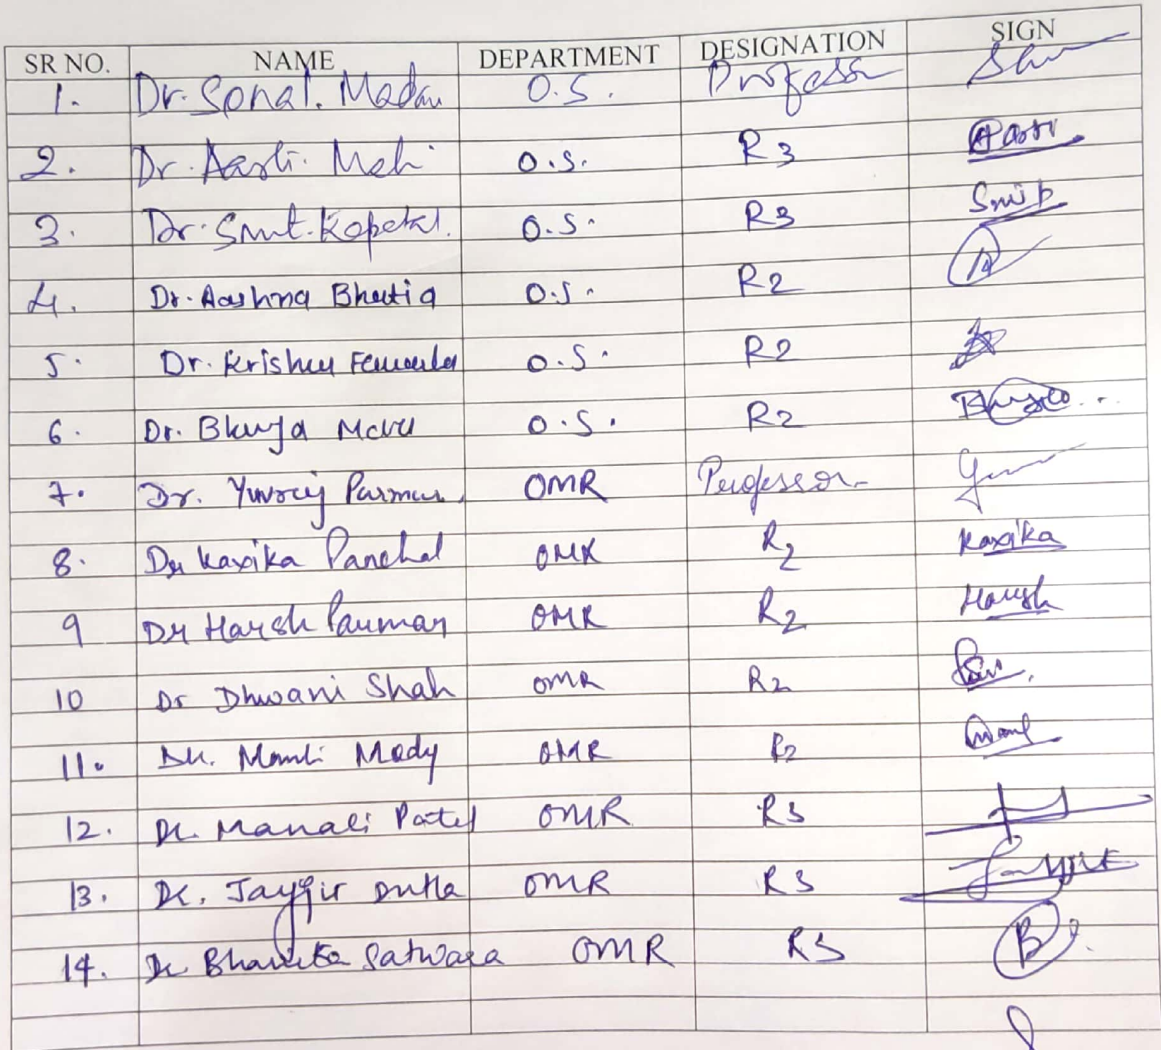 SR NO. NAME DEPARTMENT DESIGNATION SIGN
1. Dr. Sonal. Madan O.S. Professor
2. Dr. Aarti. O.S. R3 Aarti
3. Dr. Smit. O.S. R3 Smit
4. Dr. Aashna Bhatia O.S. R2
5. Dr. O.S. R2
6. Dr. O.S. R2
7. Dr. Yuvraj Parmar OMR Professor
8. Dr Karika Panchal OMR R2 Karika
9 Dr Harsh Parmar OMR R2 Harsh
10 Dr Dhwani Shah OMR R2
11. Dr. Mody OMR R2
12. Dr. Manali Patel OMR R3
13. Dr. OMR R3
14. Dr Satwara OMR R3 B